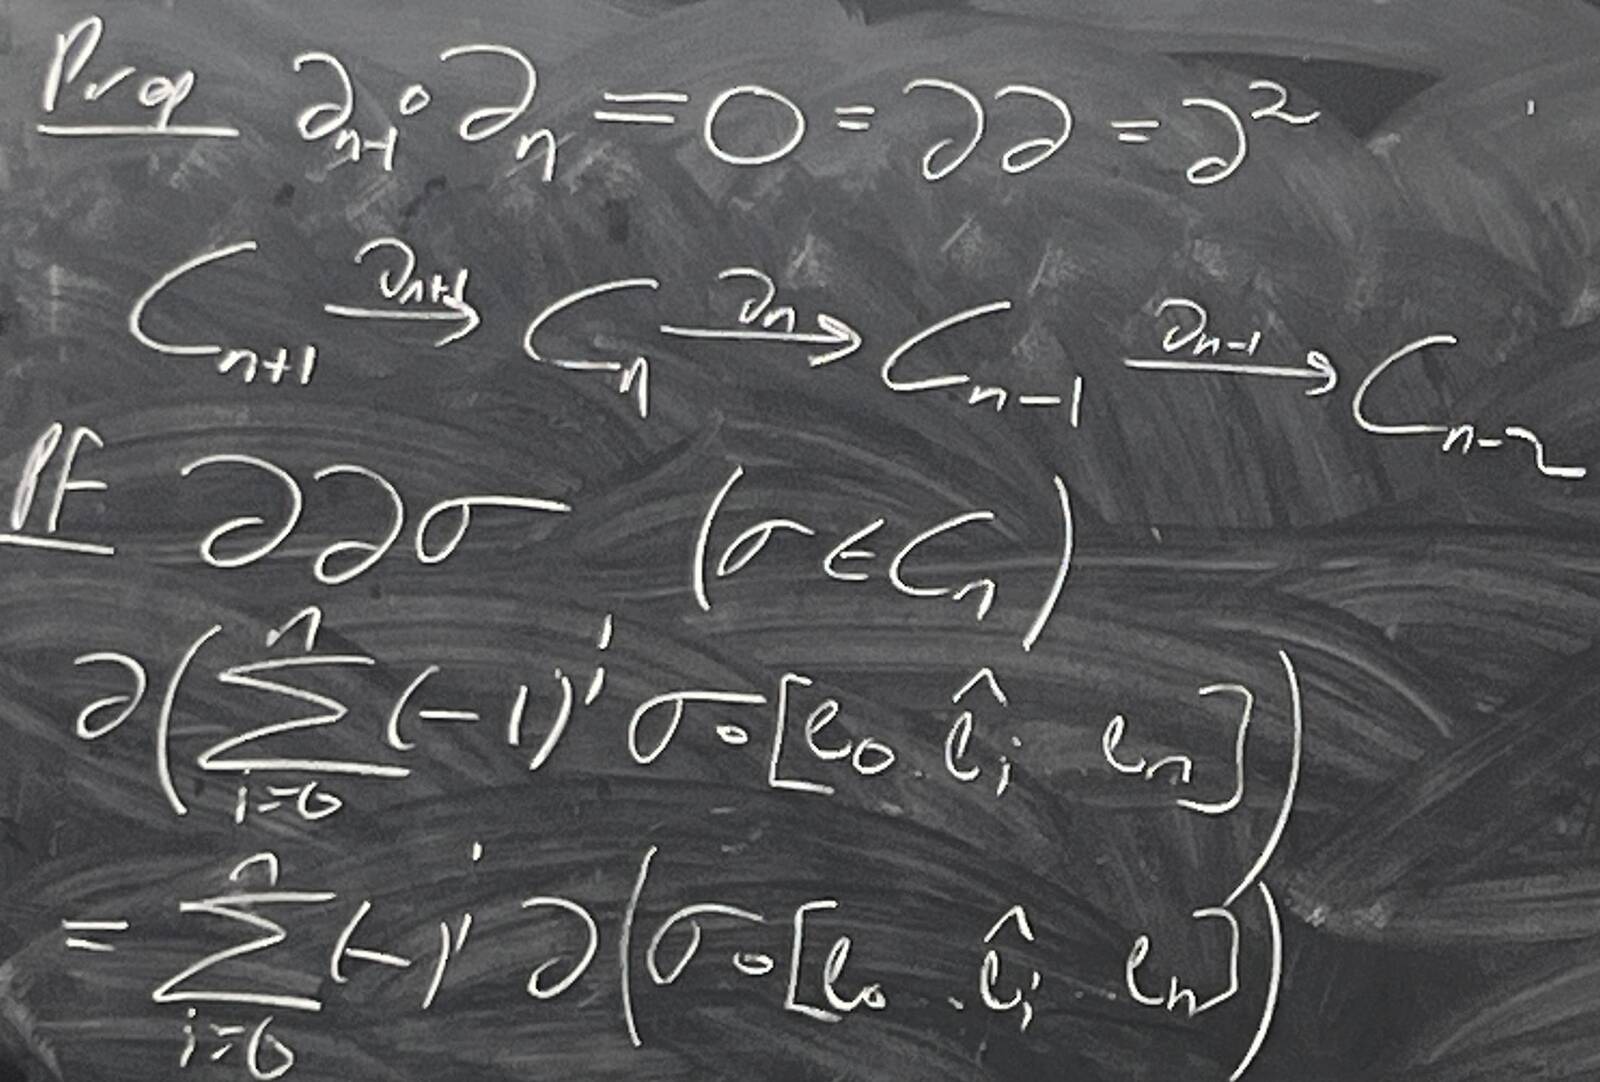 Prop ∂ₙ₋₁∘∂ₙ = 0 = ∂∂ = ∂²
Cₙ₊₁ —∂ₙ₊₁→ Cₙ —∂ₙ→ Cₙ₋₁ —∂ₙ₋₁→ Cₙ₋₂
Pf ∂∂σ (σ ∈ Cₙ)
∂(∑ᵢ₌₀ⁿ (-1)ⁱ σ∘[e₀ . êᵢ eₙ])
= ∑ᵢ₌₀ⁿ (-)ⁱ ∂(σ∘[e₀ .. êᵢ . eₙ])